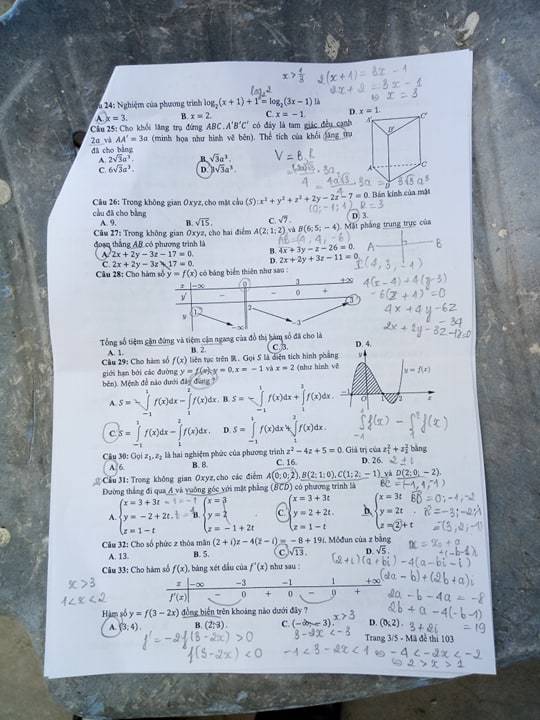 x > 1/3
2(x+1) = 3x - 1
2x + 2 = 3x - 1
⇔ x = 3
log₂2
u 24: Nghiệm của phương trình log₂(x + 1) + 1 = log₂(3x − 1) là
A. x = 3. B. x = 2. C. x = −1. D. x = 1.
Câu 25: Cho khối lăng trụ đứng ABC.A'B'C' có đáy là tam giác đều cạnh
2a và AA' = 3a (minh họa như hình vẽ bên). Thể tích của khối lăng trụ
đã cho bằng
A. 2√3a³. B. √3a³.
C. 6√3a³. D. 3√3a³.
V = B.h
A' C' B' A C B
Câu 26: Trong không gian Oxyz, cho mặt cầu (S): x² + y² + z² + 2y − 2z − 7 = 0. Bán kính của mặt
cầu đã cho bằng
(0; -1; 1) R = 3
A. 9. B. √15. C. √7. D. 3.
Câu 27: Trong không gian Oxyz, cho hai điểm A(2; 1; 2) và B(6; 5; −4). Mặt phẳng trung trực của
đoạn thẳng AB có phương trình là
AB = (4, 4, -6)
A. 2x + 2y − 3z − 17 = 0. B. 4x + 3y − z − 26 = 0.
C. 2x + 2y − 3z + 17 = 0. D. 2x + 2y + 3z − 11 = 0.
A B
I(4, 3, -1)
Câu 28: Cho hàm số y = f(x) có bảng biến thiên như sau :
x −∞ 0 3 +∞
y' − − 0 +
y 1 −∞ 2 −3 3
4(x-4) + 4(y-3)
-6(z+1) = 0
4x + 4y - 6z
- 34
2x + 2y - 3z - 17 = 0
Tổng số tiệm cận đứng và tiệm cận ngang của đồ thị hàm số đã cho là
A. 1. B. 2. C. 3. D. 4.
Câu 29: Cho hàm số f(x) liên tục trên ℝ. Gọi S là diện tích hình phẳng
giới hạn bởi các đường y = f(x), y = 0, x = −1 và x = 2 (như hình vẽ
bên). Mệnh đề nào dưới đây đúng ?
A. S = −∫₋₁¹ f(x)dx − ∫₁² f(x)dx. B. S = −∫₋₁¹ f(x)dx + ∫₁² f(x)dx.
C. S = ∫₋₁¹ f(x)dx − ∫₁² f(x)dx. D. S = ∫₋₁¹ f(x)dx + ∫₁² f(x)dx.
y = f(x)
∫f(x) - ∫f(x)
Câu 30: Gọi z₁, z₂ là hai nghiệm phức của phương trình z² − 4z + 5 = 0. Giá trị của z₁² + z₂² bằng
A. 6. B. 8. C. 16. D. 26.
2 ± i
Câu 31: Trong không gian Oxyz, cho các điểm A(0; 0; 2), B(2; 1; 0), C(1; 2; −1) và D(2; 0; −2).
Đường thẳng đi qua A và vuông góc với mặt phẳng (BCD) có phương trình là
A. {x = 3 + 3t, y = −2 + 2t, z = 1 − t. B. {x = 3, y = 2, z = −1 + 2t. C. {x = 3 + 3t, y = 2 + 2t, z = 1 − t. D. {x = 3t, y = 2t, z = 2 + t.
BC = (-1, 1, -1)
BD = 0; -1; -2
= (3, 2, -1)
Câu 32: Cho số phức z thỏa mãn (2 + i)z − 4(z̄ − i) = −8 + 19i. Môđun của z bằng
A. 13. B. 5. C. √13. D. √5.
(2+i)(a+bi) - 4(a-bi-i)
Câu 33: Cho hàm số f(x), bảng xét dấu của f'(x) như sau :
x −∞ −3 −1 1 +∞
f'(x) − 0 + 0 − 0 +
x > 3
1 < x < 2
2a - b - 4a = -8
2b + a - 4(-b-1)
= 19
3 + 2i
Hàm số y = f(3 − 2x) đồng biến trên khoảng nào dưới đây ?
A. (3; 4). B. (2; 3). C. (−∞; −3). D. (0; 2).
x > 3
3 - 2x < -3
f' = -2f'(3-2x) > 0
f'(3-2x) < 0
-1 < 3-2x < 1 ⇔ -4 < -2x < -2
⇔ 2 > x > 1
Trang 3/5 - Mã đề thi 103